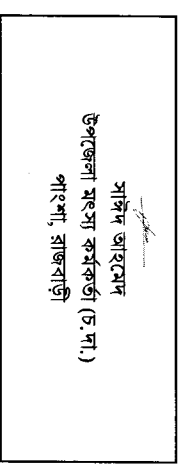 সাঈদ আহমেদ
উপজেলা মৎস্য কর্মকর্তা (চ.দা.)
পাংশা, রাজবাড়ী